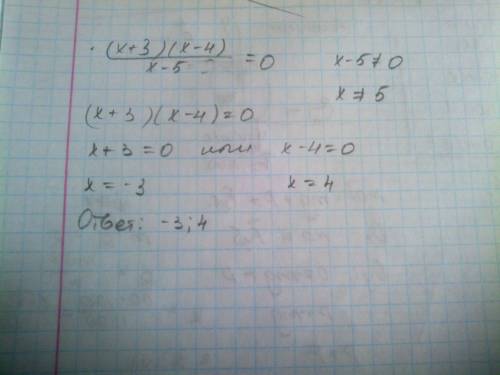 (x+3)(x-4)/(x-5) = 0    x-5≠0
x≠5
(x+3)(x-4)=0
x+3=0 или x-4=0
x=-3    x=4
Ответ: -3; 4